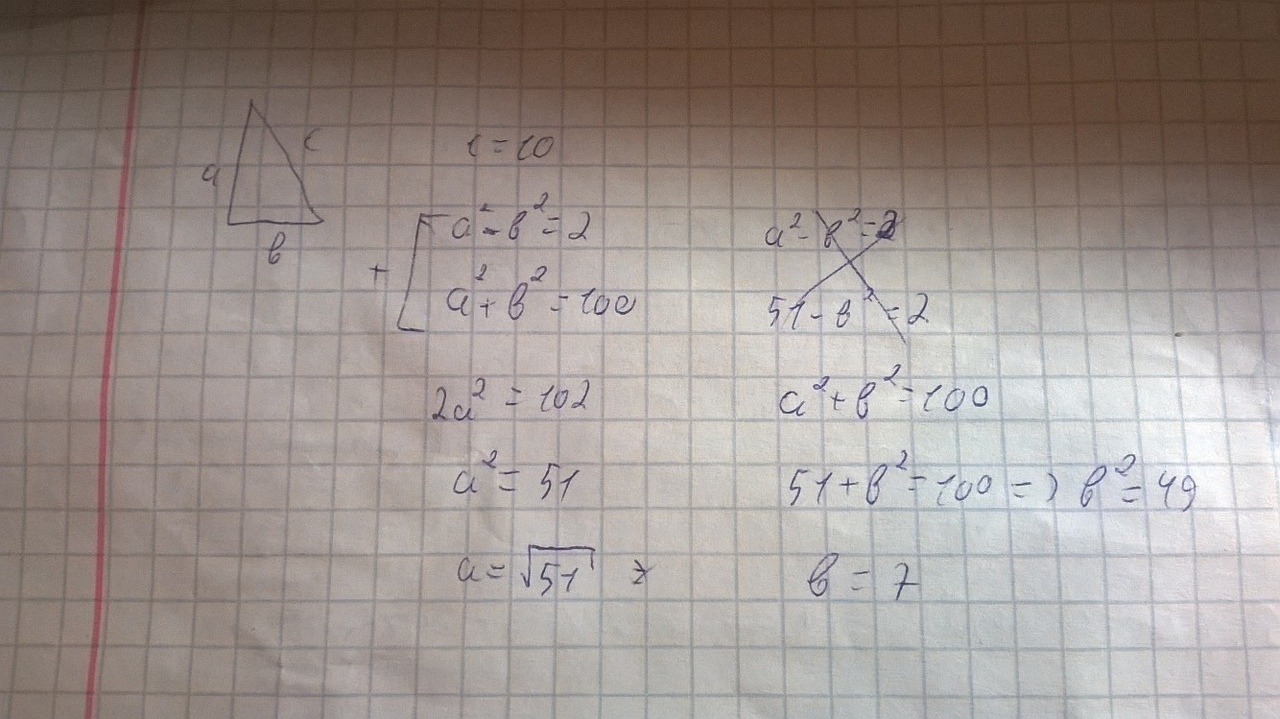 a
c
в
c = 10
+
a² - в² = 2
a² + в² = 100
2a² = 102
a² = 51
a = √51
a² - в² = 2
51 - в² = 2
a² + в² = 100
51 + в² = 100 => в² = 49
в = 7